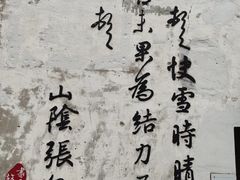 頓首快雪時晴
未果為結力不
頓首
山陰張